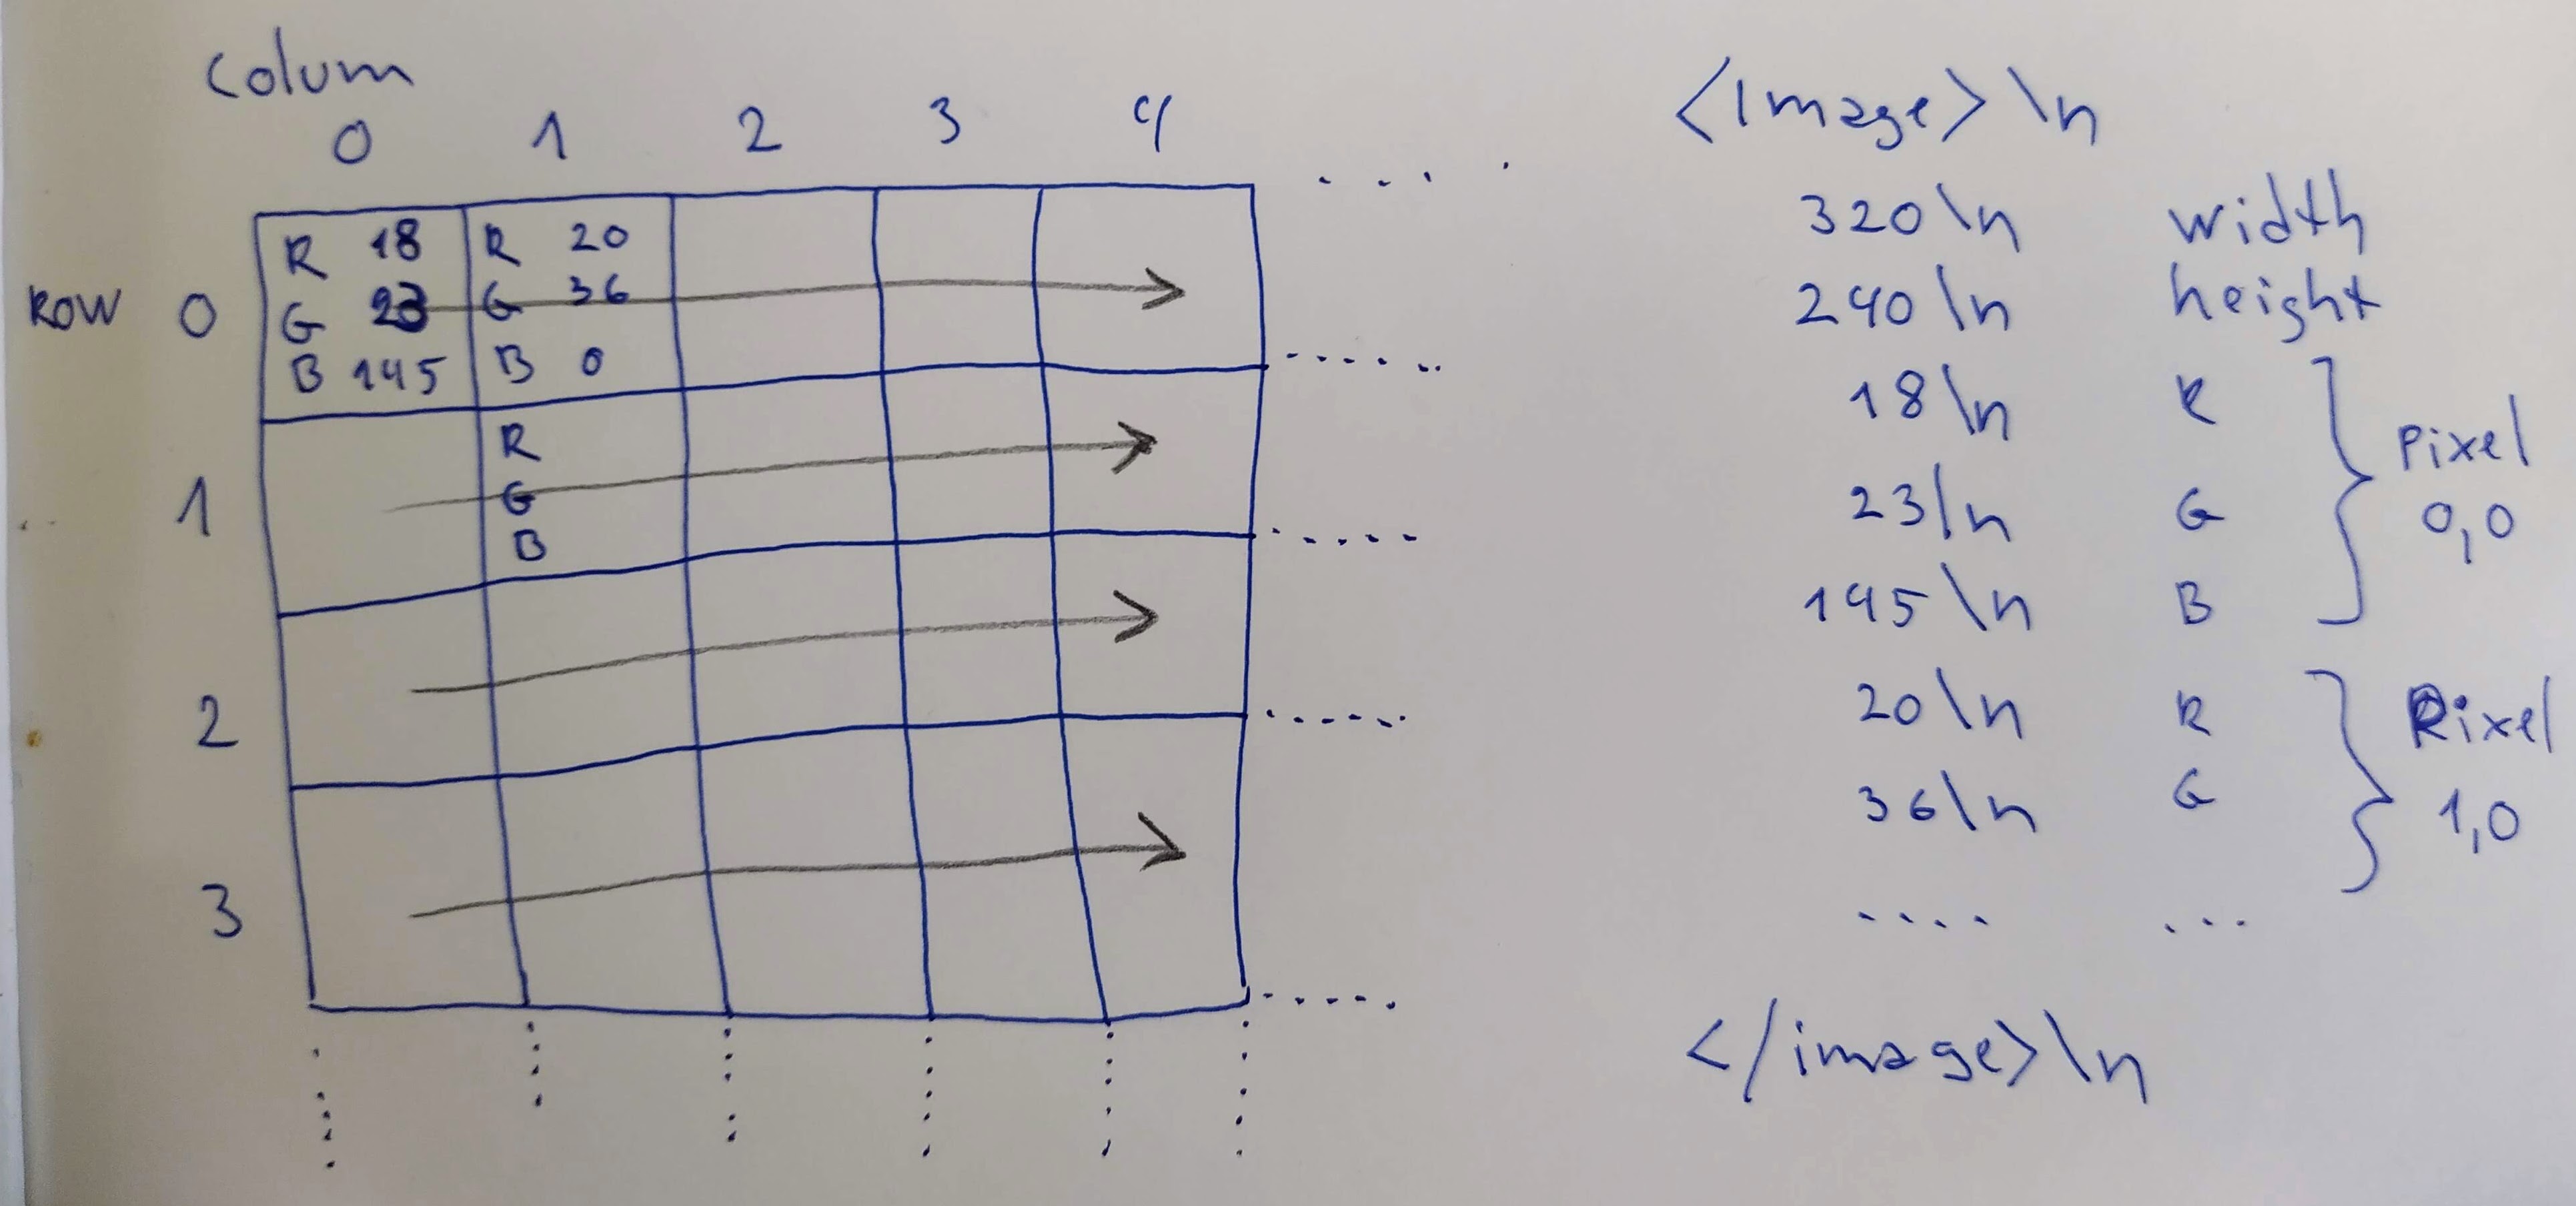 Colum
0 1 2 3 4
Row 0
R 18
G 23
B 145
R 20
G 36
B 0
1
R
G
B
2
3
<Image>\n
320\n width
240\n height
18\n R
23\n G
145\n B
Pixel
0,0
20\n R
36\n G
Pixel
1,0
.... ...
</image>\n